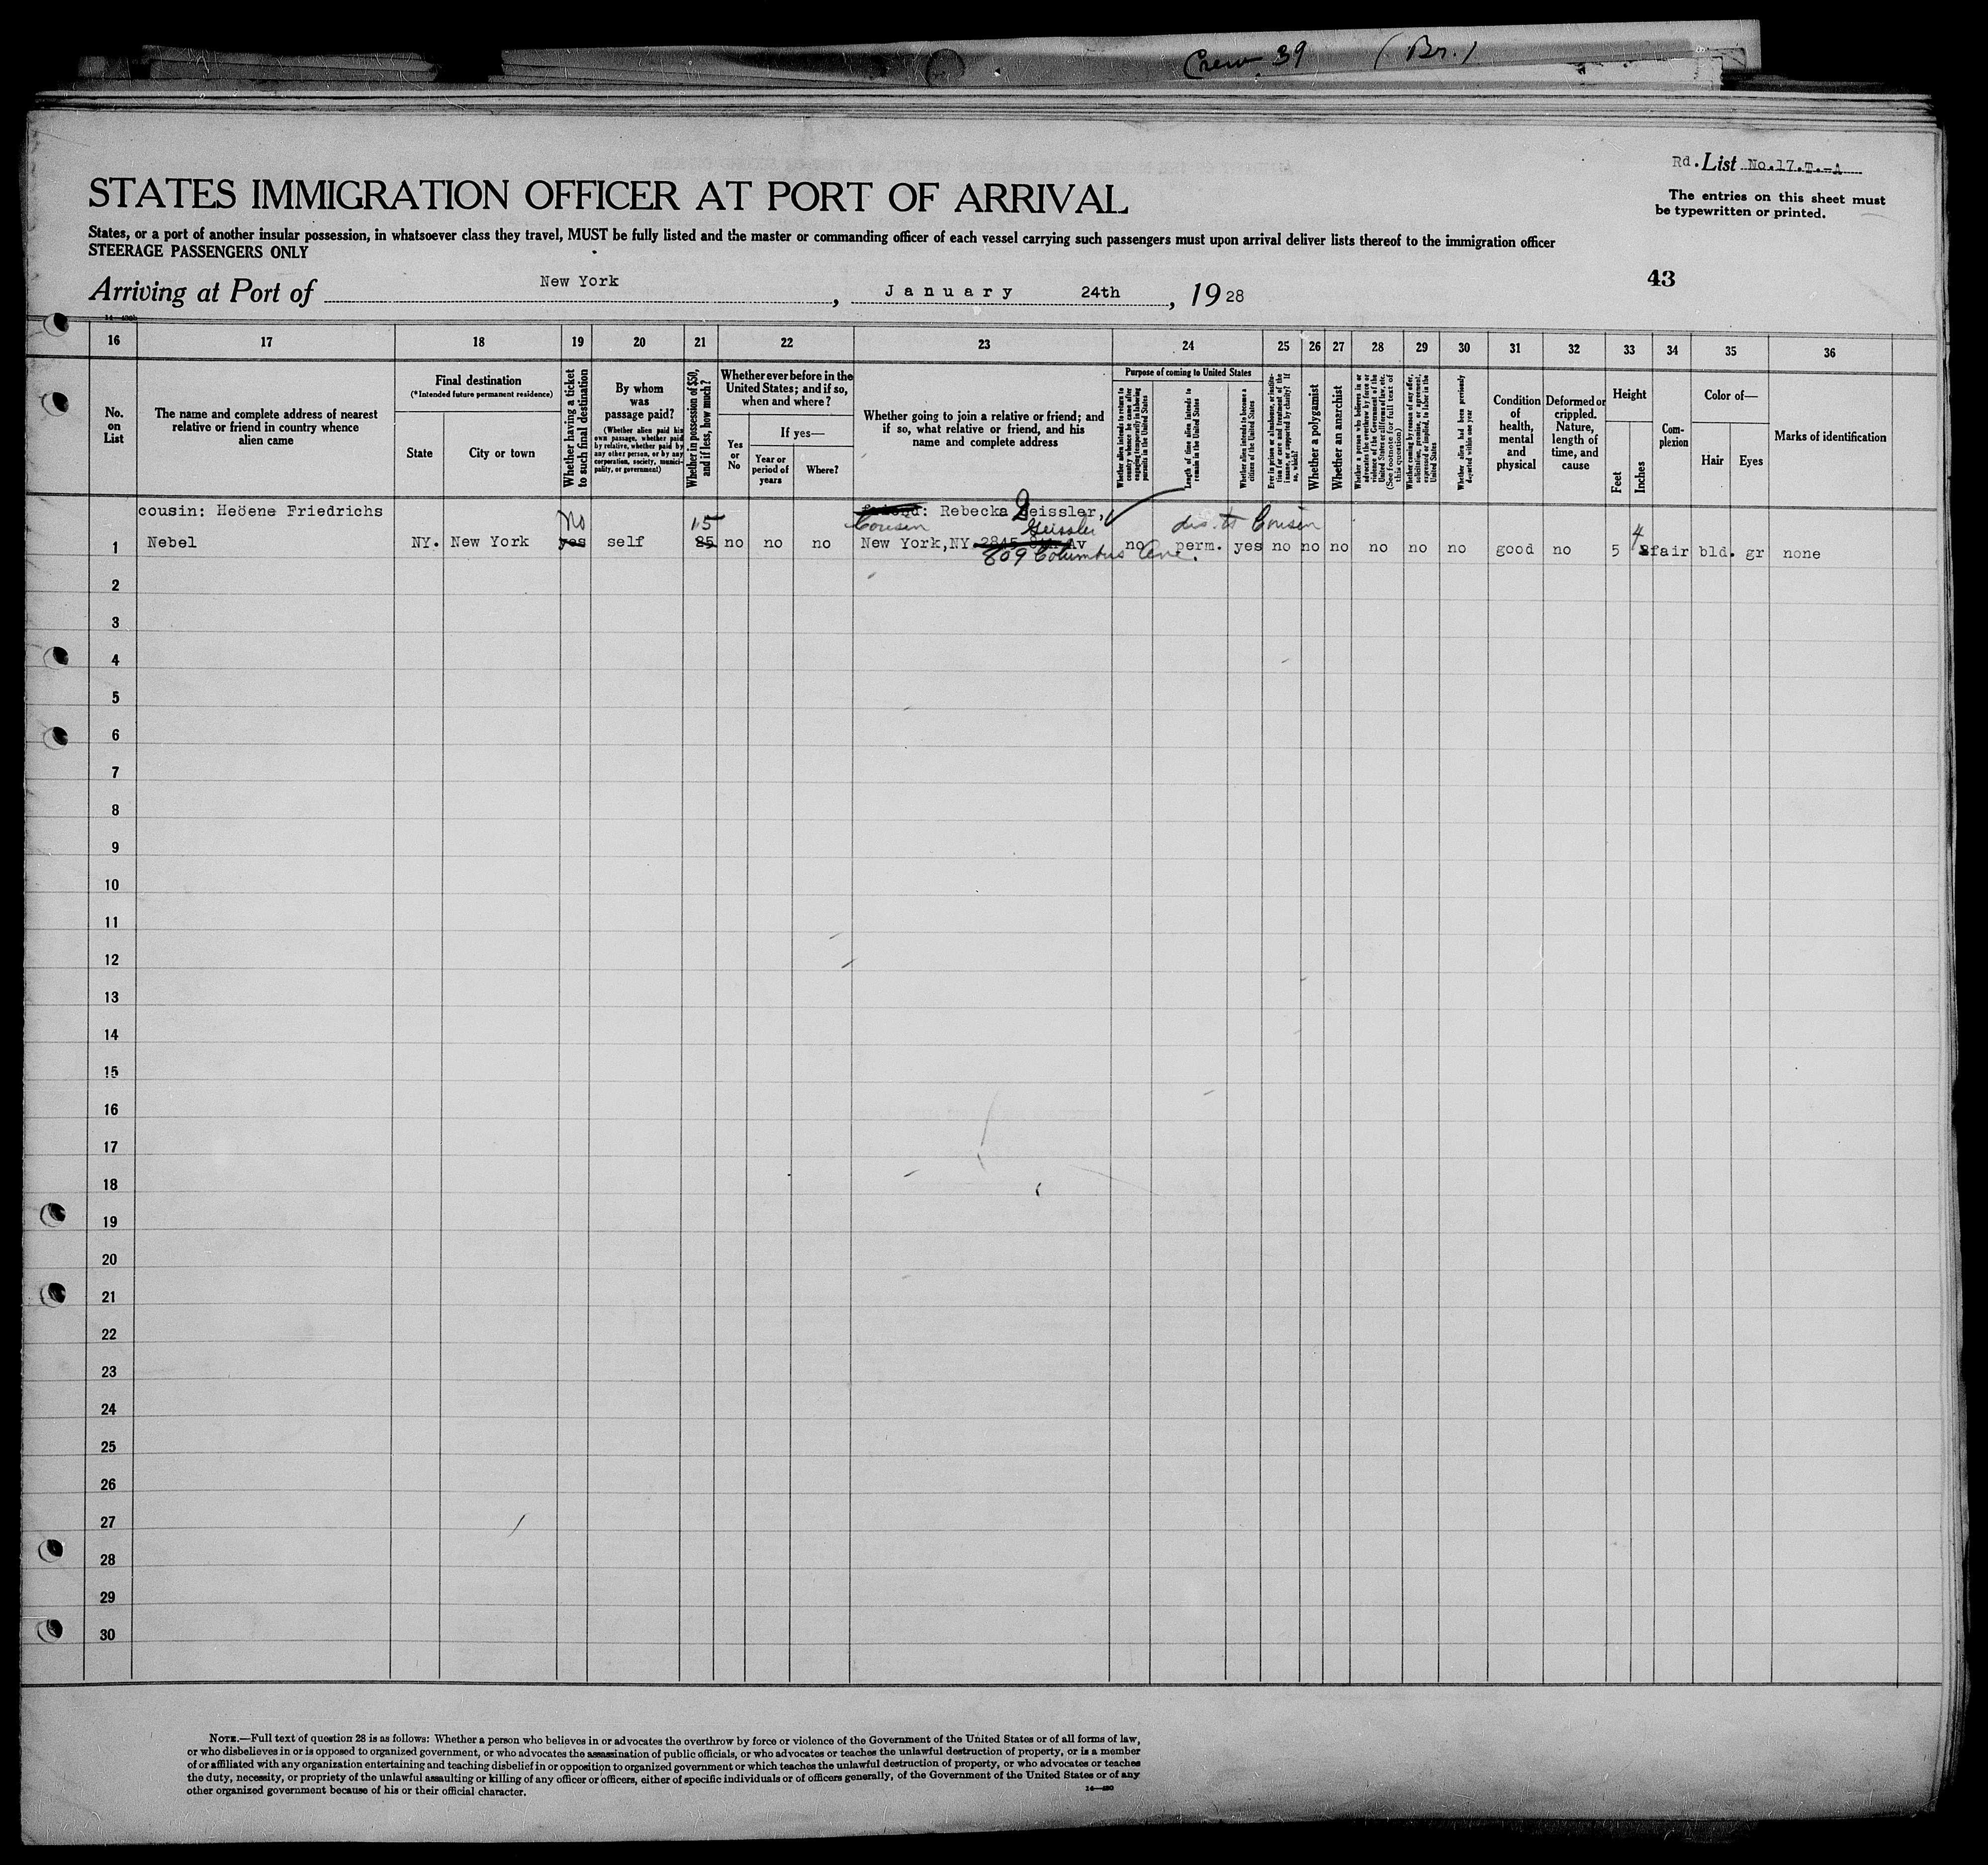 Crew 39 (Br.)
Rd. List No.17.T.-A
STATES IMMIGRATION OFFICER AT PORT OF ARRIVAL
The entries on this sheet must
be typewritten or printed.
States, or a port of another insular possession, in whatsoever class they travel, MUST be fully listed and the master or commanding officer of each vessel carrying such passengers must upon arrival deliver lists thereof to the immigration officer
STEERAGE PASSENGERS ONLY
43
Arriving at Port of New York, January 24th, 1928
16 17 18 19 20 21 22 23 24 25 26 27 28 29 30 31 32 33 34 35 36
No.
on
List
The name and complete address of nearest
relative or friend in country whence
alien came
Final destination
(*Intended future permanent residence)
State
City or town
Whether having a ticket
to such final destination
By whom
was
passage paid?
(Whether alien paid his
own passage, whether paid
by relative, whether paid by
any other person, or by any
corporation, society, munici-
pality, or government)
Whether in possession of $50,
and if less, how much?
Whether ever before in the
United States; and if so,
when and where?
Yes
or
No
If yes—
Year or
period of
years
Where?
Whether going to join a relative or friend; and
if so, what relative or friend, and his
name and complete address
Purpose of coming to United States
Whether alien intends to return to
country whence he came after
engaging temporarily in laboring
pursuits in the United States
Length of time alien intends to
remain in the United States
Whether alien intends to become a
citizen of the United States
Ever in prison or almshouse, or institu-
tion for care and treatment of the
insane, or supported by charity? If
so, which?
Whether a polygamist
Whether an anarchist
Whether a person who believes in or
advocates the overthrow by force or
violence of the Government of the
United States or all forms of law, etc.
(See footnote for full text of
this question)
Whether coming by reason of any offer,
solicitation, promise, or agreement,
expressed or implied, to labor in the
United States
Whether alien had been previously
deported within one year
Condition
of
health,
mental
and
physical
Deformed or
crippled.
Nature,
length of
time, and
cause
Height
Feet
Inches
Com-
plexion
Color of—
Hair
Eyes
Marks of identification
cousin: Heöene Friedrichs
No
15
friend: Rebecka Geissler,
Cousin
Geissler
dis. to Cousin
4
1 Nebel NY. New York yes self 25 no no no New York,NY. 2845 8th Av no perm. yes no no no no no no good no 5 fair bld. gr none
809 Columbus Ave.
2
3
4
5
6
7
8
9
10
11
12
13
14
15
16
17
18
19
20
21
22
23
24
25
26
27
28
29
30
NOTE.—Full text of question 28 is as follows: Whether a person who believes in or advocates the overthrow by force or violence of the Government of the United States or of all forms of law,
or who disbelieves in or is opposed to organized government, or who advocates the assassination of public officials, or who advocates or teaches the unlawful destruction of property, or is a member
of or affiliated with any organization entertaining and teaching disbelief in or opposition to organized government or which teaches the unlawful destruction of property, or who advocates or teaches
the duty, necessity, or propriety of the unlawful assaulting or killing of any officer or officers, either of specific individuals or of officers generally, of the Government of the United States or of any
other organized government because of his or their official character.
14—480